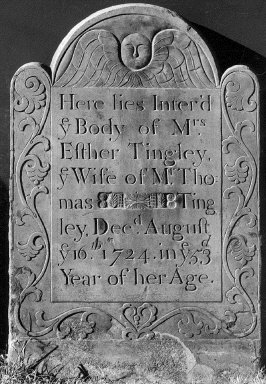 Here lies Inter'd
yͤ Body of Mʳˢ
Eſther Tingley,
yͤ Wife of Mʳ Tho-
mas Ting
ley, Decᵈ. Auguſt
yͤ 16.ᵗʰ 1724. in yͤ 53ᵈ
Year of her Age.